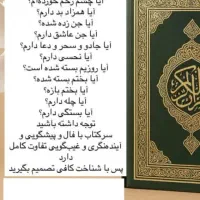 آیا چشم زخم خورده‌ام؟
آیا همزاد بد دارم؟
آیا جن زده شده؟
آیا جن عاشق دارم؟
آیا جادو و سحر و دعا دارم؟
آیا نحسی دارم؟
آیا روزیم بسته شده است؟
آیا بختم بسته شده؟
آیا بختم بازه؟
آیا چله دارم؟
آیا بستگی دارم؟
توجه داشته باشید
سرکتاب با فال و پیشگویی و
آینده‌نگری و غیب‌گویی تفاوت کامل
دارد
پس با شناخت کافی تصمیم بگیرید